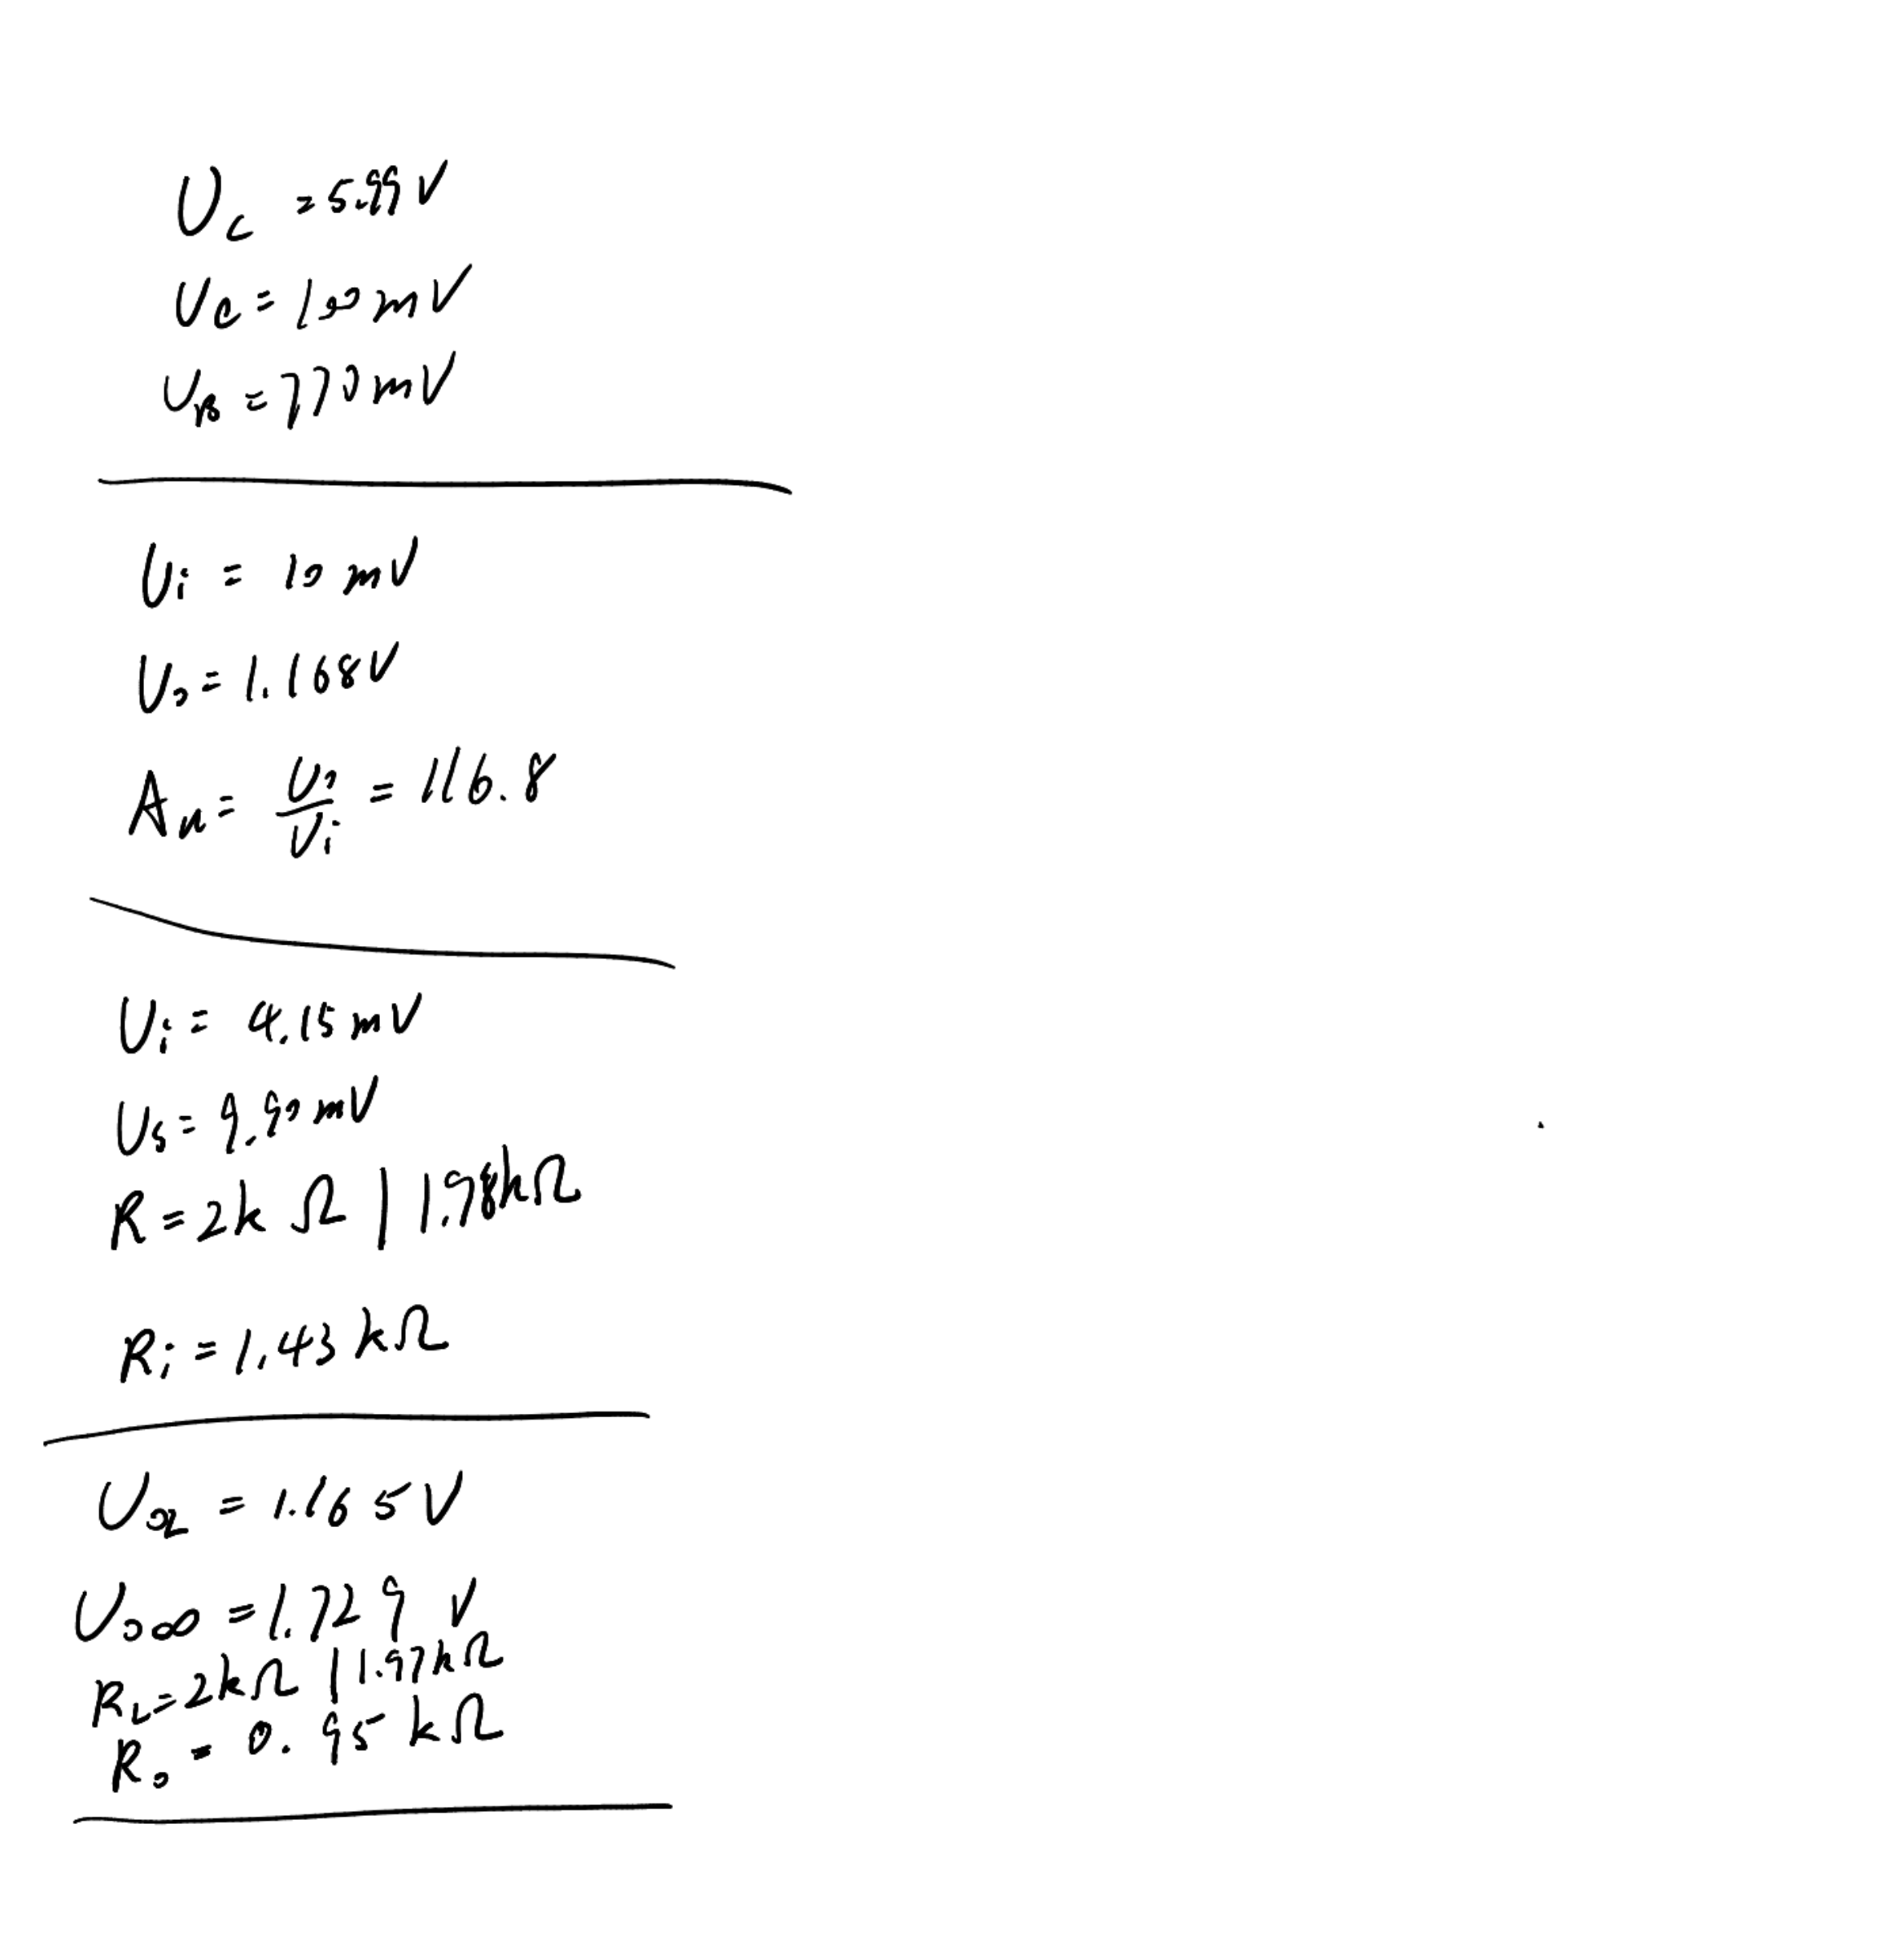 U_C = 5.99 V
U_e = 100 mV
U_B = 770 mV
U_i = 10 mV
U_o = 1.168 V
A_u = U_o / U_i = 116.8
U_i = 4.15 mV
U_s = 9.90 mV
R = 2k Ω | 1.98kΩ
R_i = 1.43 kΩ
U_oL = 1.165 V
U_o∞ = 1.729 V
R_L = 2kΩ | 1.97kΩ
R_o = 0.95 kΩ